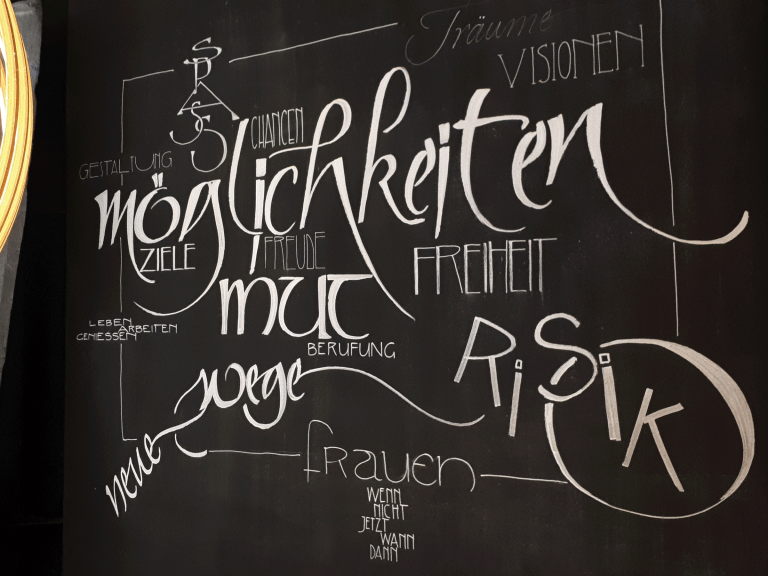 Träume
VISIONEN
SPASS
CHANCEN
GESTALTUNG
möglichkeiten
ZIELE
FREUDE
FREIHEIT
mut
LEBEN
ARBEITEN
GENIESSEN
BERUFUNG
RiSiKO
neue wege
frauen
WENN
NICHT
JETZT
WANN
DANN